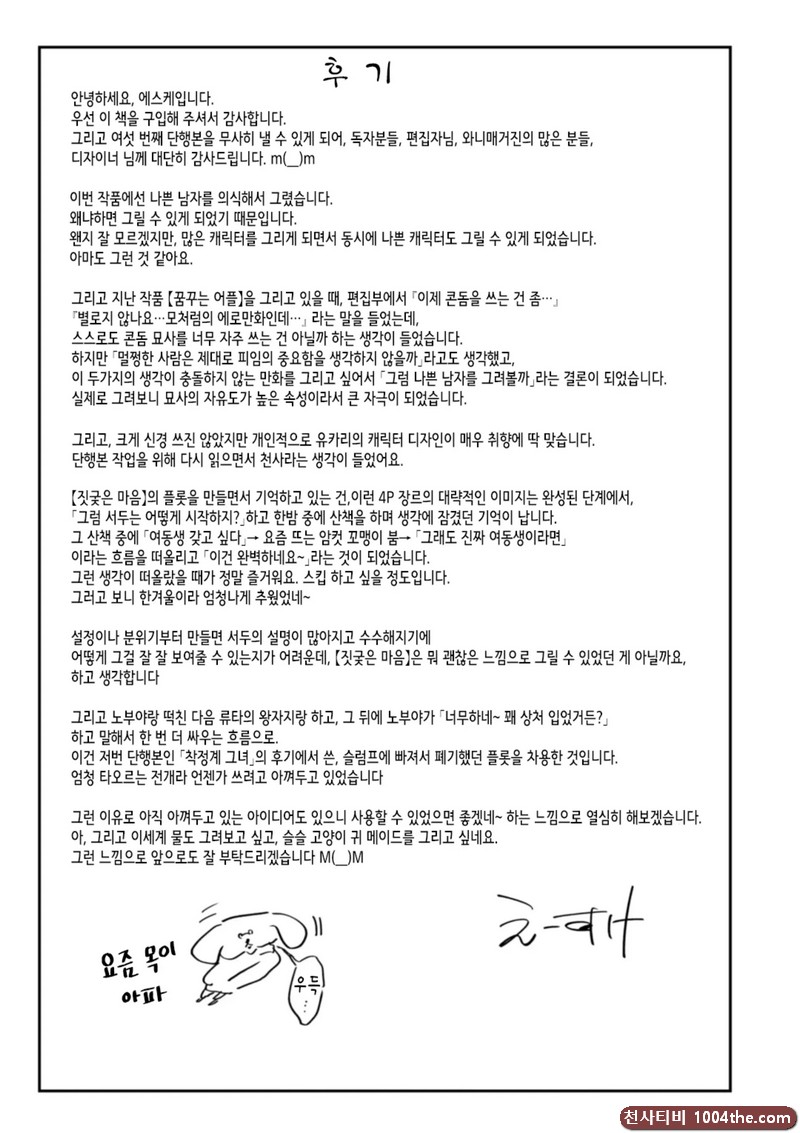 후기
안녕하세요, 에스케입니다.
우선 이 책을 구입해 주셔서 감사합니다.
그리고 여섯 번째 단행본을 무사히 낼 수 있게 되어, 독자분들, 편집자님, 와니매거진의 많은 분들,
디자이너 님께 대단히 감사드립니다. m(__)m
이번 작품에선 나쁜 남자를 의식해서 그렸습니다.
왜냐하면 그릴 수 있게 되었기 때문입니다.
왠지 잘 모르겠지만, 많은 캐릭터를 그리게 되면서 동시에 나쁜 캐릭터도 그릴 수 있게 되었습니다.
아마도 그런 것 같아요.
그리고 지난 작품 【꿈꾸는 어플】을 그리고 있을 때, 편집부에서 『이제 콘돔을 쓰는 건 좀…』
『별로지 않나요…모처럼의 에로만화인데…』 라는 말을 들었는데,
스스로도 콘돔 묘사를 너무 자주 쓰는 건 아닐까 하는 생각이 들었습니다.
하지만 「멀쩡한 사람은 제대로 피임의 중요함을 생각하지 않을까」라고도 생각했고,
이 두가지의 생각이 충돌하지 않는 만화를 그리고 싶어서 「그럼 나쁜 남자를 그려볼까」라는 결론이 되었습니다.
실제로 그려보니 묘사의 자유도가 높은 속성이라서 큰 자극이 되었습니다.
그리고, 크게 신경 쓰진 않았지만 개인적으로 유카리의 캐릭터 디자인이 매우 취향에 딱 맞습니다.
단행본 작업을 위해 다시 읽으면서 천사라는 생각이 들었어요.
【짓궂은 마음】의 플롯을 만들면서 기억하고 있는 건,이런 4P 장르의 대략적인 이미지는 완성된 단계에서,
「그럼 서두는 어떻게 시작하지?」하고 한밤 중에 산책을 하며 생각에 잠겼던 기억이 납니다.
그 산책 중에 「여동생 갖고 싶다」→ 요즘 뜨는 암컷 꼬맹이 붐→ 「그래도 진짜 여동생이라면」
이라는 흐름을 떠올리고 「이건 완벽하네요~」라는 것이 되었습니다.
그런 생각이 떠올랐을 때가 정말 즐거워요. 스킵 하고 싶을 정도입니다.
그러고 보니 한겨울이라 엄청나게 추웠었네~
설정이나 분위기부터 만들면 서두의 설명이 많아지고 수수해지기에
어떻게 그걸 잘 잘 보여줄 수 있는지가 어려운데, 【짓궂은 마음】은 뭐 괜찮은 느낌으로 그릴 수 있었던 게 아닐까요,
하고 생각합니다
그리고 노부야랑 떡친 다음 류타의 왕자지랑 하고, 그 뒤에 노부야가 「너무하네~ 꽤 상처 입었거든?」
하고 말해서 한 번 더 싸우는 흐름으로.
이건 저번 단행본인 「착정계 그녀」의 후기에서 쓴, 슬럼프에 빠져서 폐기했던 플롯을 차용한 것입니다.
엄청 타오르는 전개라 언젠가 쓰려고 아껴두고 있었습니다
그런 이유로 아직 아껴두고 있는 아이디어도 있으니 사용할 수 있었으면 좋겠네~ 하는 느낌으로 열심히 해보겠습니다.
아, 그리고 이세계 물도 그려보고 싶고, 슬슬 고양이 귀 메이드를 그리고 싶네요.
그런 느낌으로 앞으로도 잘 부탁드리겠습니다 M(__)M
요즘 목이
아파
우득
…
천사티비 1004the.com